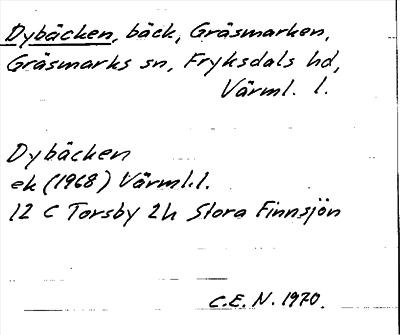 Dybäcken, bäck, Gräsmarken,
Gräsmarks sn, Fryksdals hd,
Värml. l.
Dybäcken
ek (1968) Värml.l.
12 C Torsby 2h Stora Finnsjön
C.E.N. 1970.